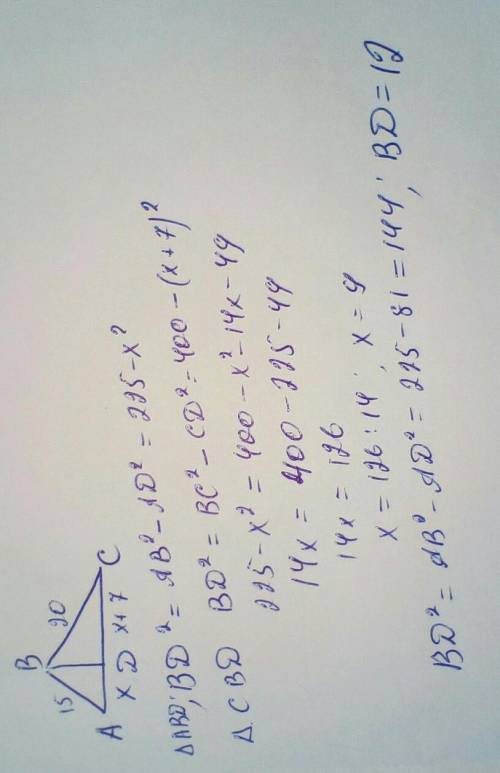 B
15 20
A x D x+7 C
ΔABD; BD² = AB² - AD² = 225 - x²
Δ CBD BD² = BC² - CD² = 400 - (x+7)²
225 - x² = 400 - x² - 14x - 49
14x = 400 - 225 - 49
14x = 126
x = 126 : 14; x = 9
BD² = AB² - AD² = 225 - 81 = 144; BD = 12